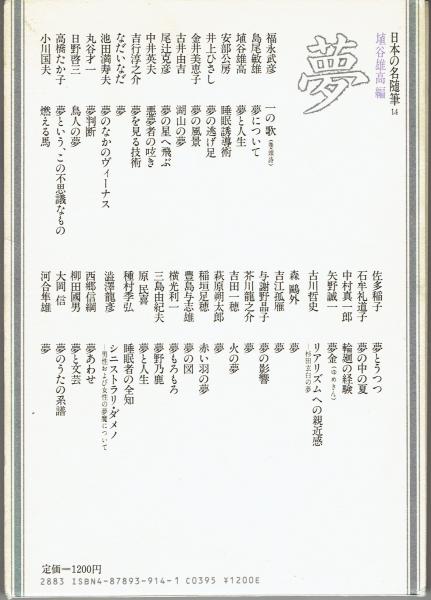 日本の名随筆14
埴谷雄高 編
夢
福永武彦 一の歌(巻頭詩)
島尾敏雄 夢について
埴谷雄高 夢と人生
安部公房 睡眠誘導術
井上ひさし 夢の逃げ足
金井美恵子 夢の風景
古井由吉 湖山の夢
尾辻克彦 夢の星へ飛ぶ
中井英夫 悪夢者の呟き
吉行淳之介 夢を見る技術
なだいなだ 夢
池田満寿夫 夢のなかのヴィーナス
丸谷才一 夢判断
日野啓三 鳥人の夢
高橋たか子 夢という、この不思議なもの
小川国夫 燃える馬
佐多稲子 夢とうつつ
石牟礼道子 夢の中の夏
中村真一郎 輪廻の経験
矢野誠一 夢金(ゆめきん)
古川哲史 リアリズムへの親近感
―杉田玄白の夢
森 鷗外 夢
吉江孤雁 夢
与謝野晶子 夢の影響
芥川龍之介 夢
吉田一穂 火の夢
萩原朔太郎 夢
稲垣足穂 赤い羽の夢
豊島与志雄 夢の図
横光利一 夢もろもろ
三島由紀夫 夢野乃鹿
原 民喜 夢と人生
種村季弘 睡眠者の全知
澁澤龍彥 シニストラリ・ダメノ
―男性および女性の夢魔について
西郷信綱 夢あわせ
柳田國男 夢と文芸
大岡 信 夢のうたの系譜
河合隼雄 夢
定価―1200円
2883 ISBN4-87893-914-1 C0395 ¥1200E